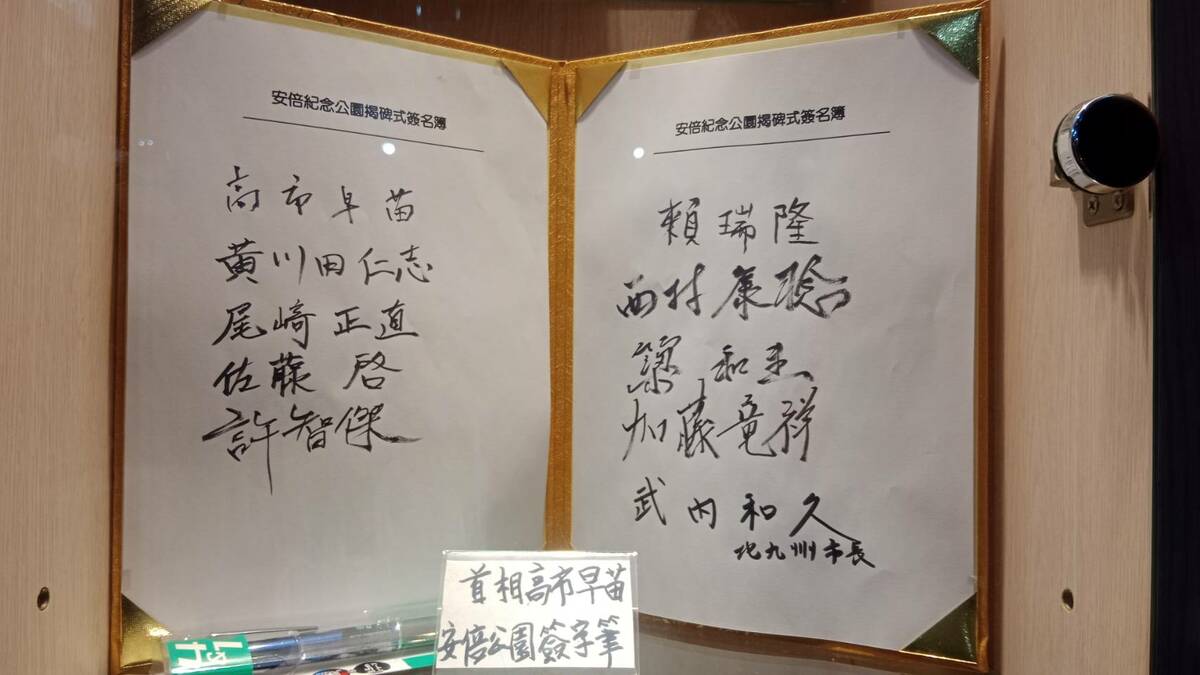 安倍紀念公園揭碑式簽名簿
高市早苗
黄川田仁志
尾﨑正直
佐藤啓
許智傑
安倍紀念公園揭碑式簽名簿
賴瑞隆
西村康稔
簗和生
加藤竜祥
武内和久
北九州市長
首相高市早苗
安倍公園簽字筆